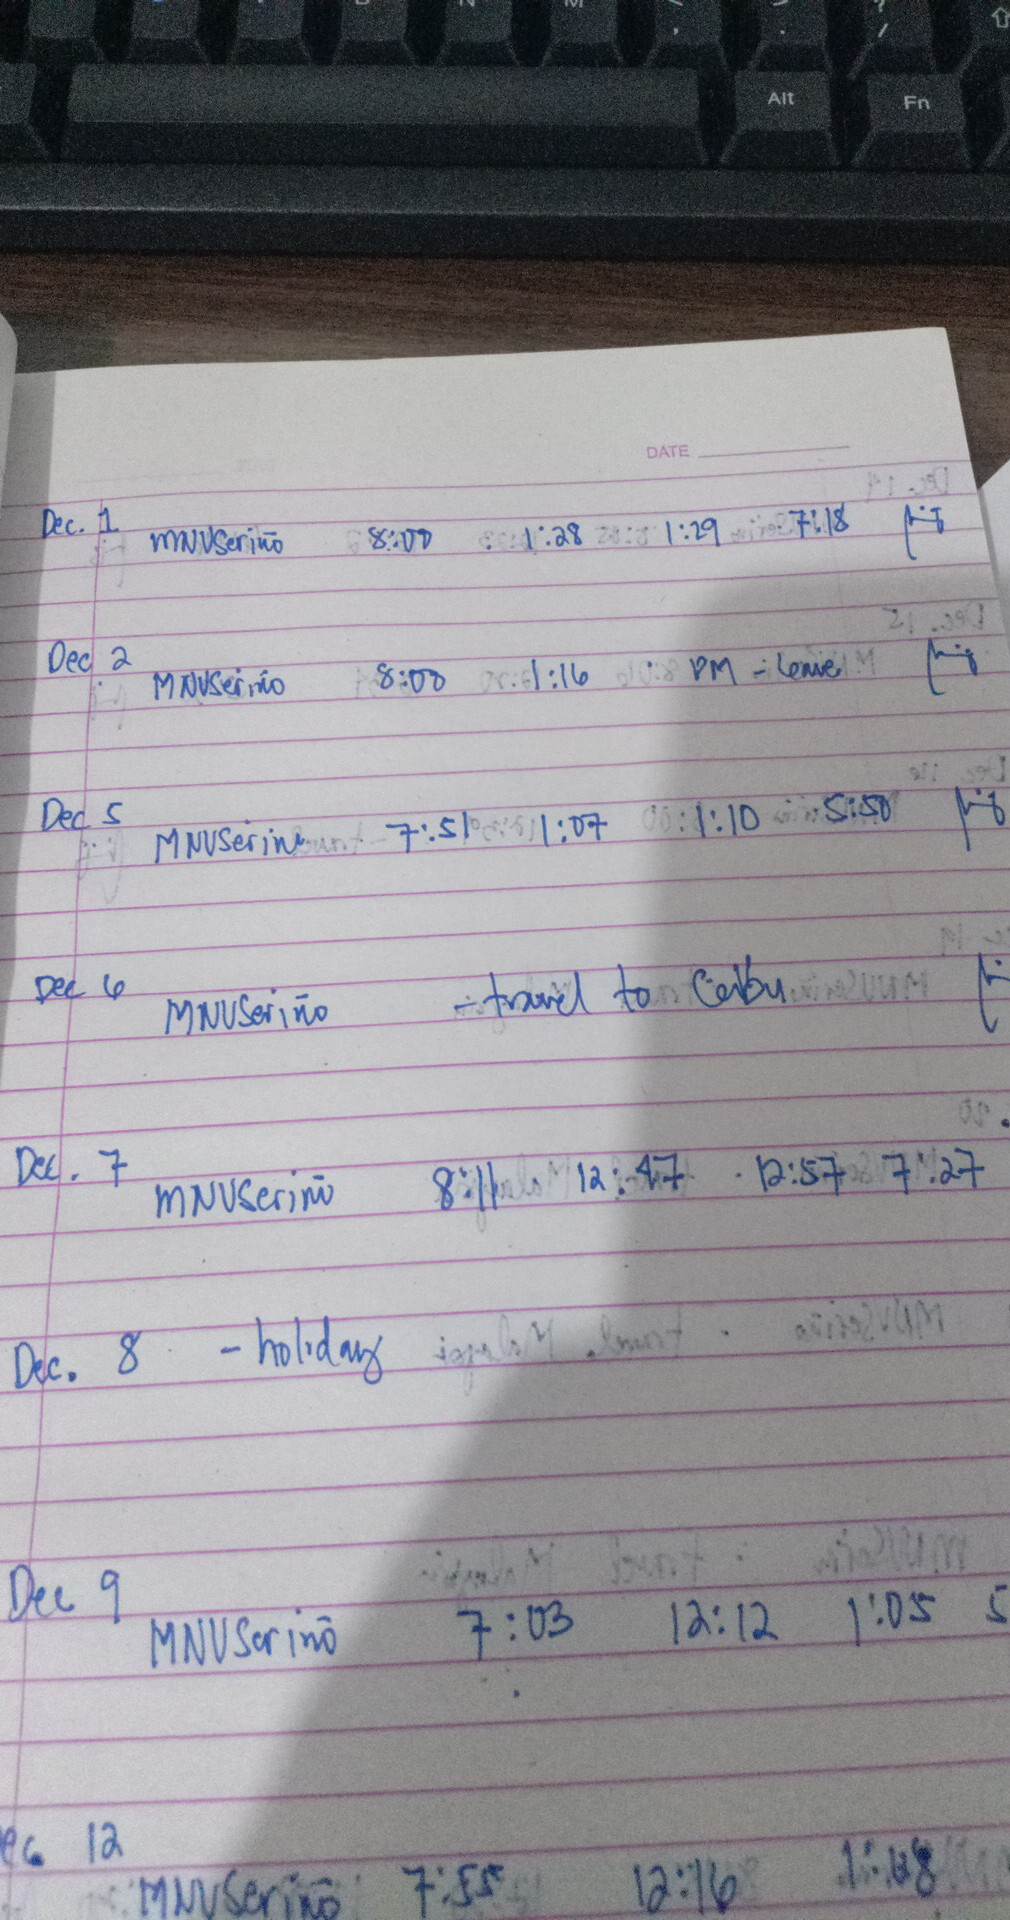 Alt Fn
DATE
Dec. 1
MNVSeriño 8:00 1:28 1:29 7:18
Dec 2
MNVSeriño 8:00 1:16 PM - Leave
Dec 5
MNVSeriño 7:51 11:07 1:10 5:50
Dec 6
MNVSeriño - travel to Cebu
Dec. 7
MNVSeriño 8:11 12:47 12:57 7:27
Dec. 8 - holiday
Dec 9
MNVSeriño 7:03 12:12 1:05 5
12
MNVSeriño 7:55 12:16